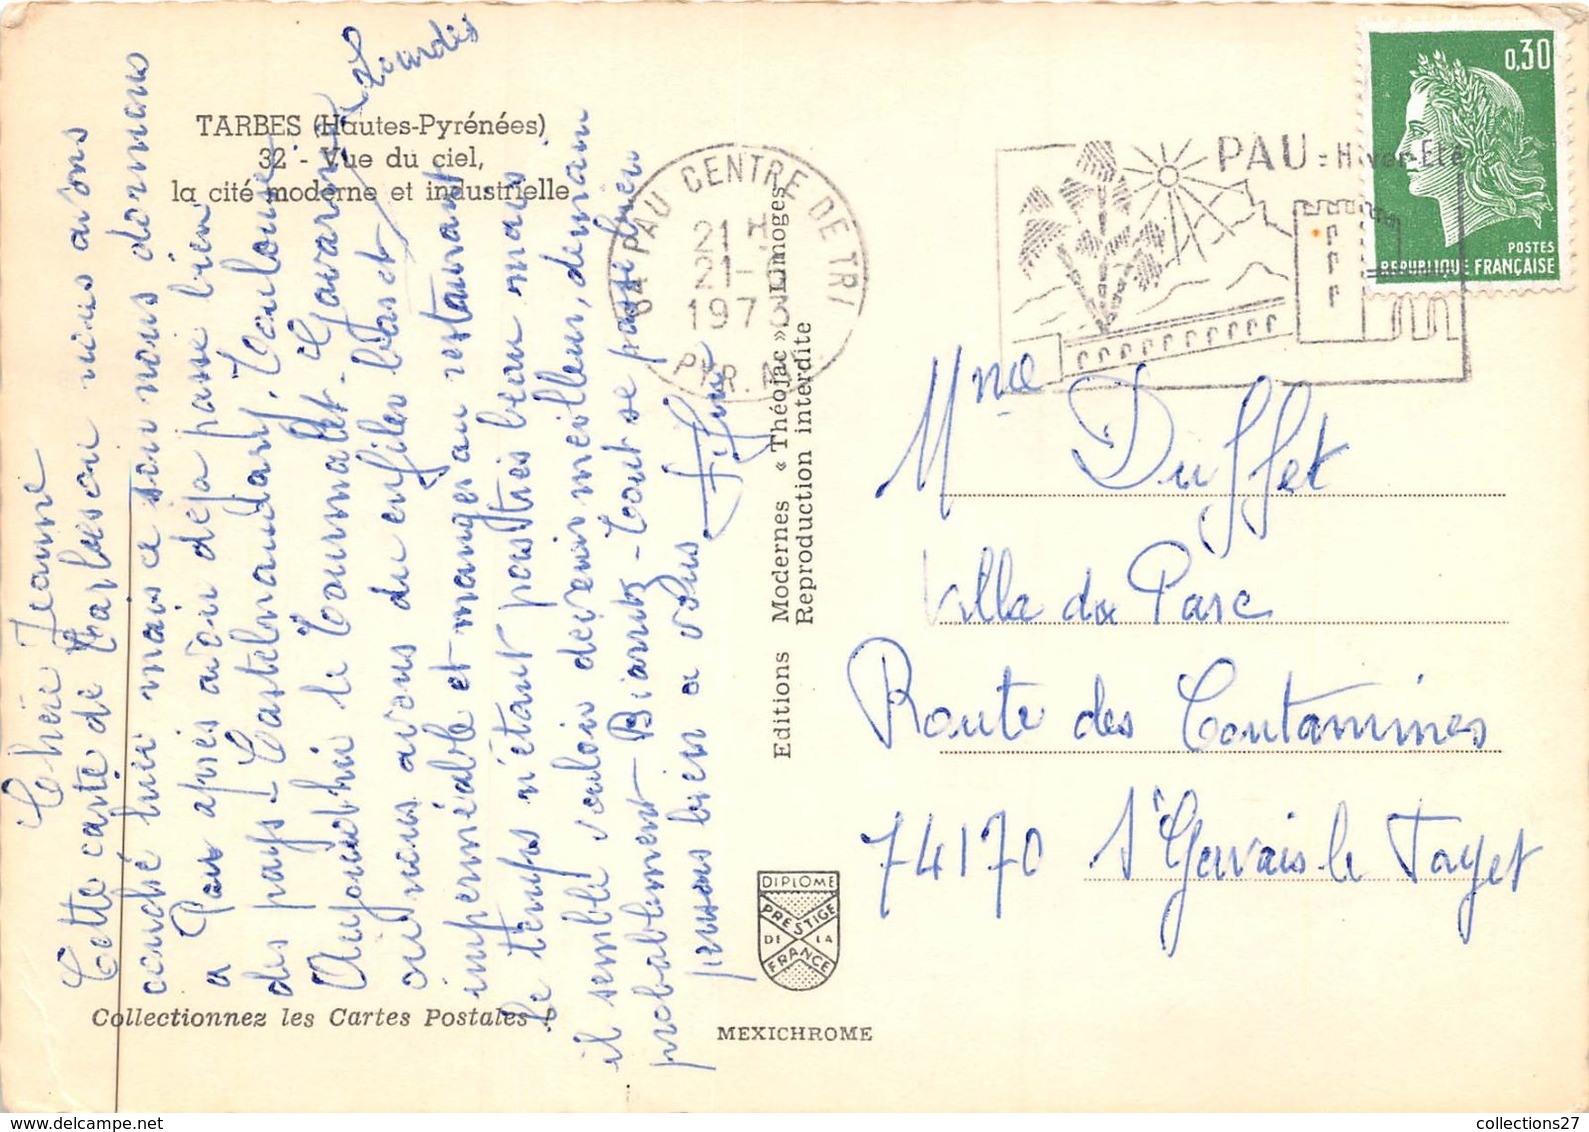 TARBES (Hautes-Pyrénées)
32 - Vue du ciel,
la cité moderne et industrielle
Chère Jeanne
Cette carte de Tarbes où nous avons
couché hier mais ce soir nous dormons
a Pau après avoir déja passé bien
des pays - Castelnaudary. Toulouse
Aujourd'hui le Tourmalet - Gavarnie Lourdes
où nous avons du enfiler bas et
imperméable et manger au restaurant
le temps n'étant pas très beau mais
il semble vouloir devenir meilleur, demain
probablement Biarritz - tout se passe bien
pensons bien a vous
Collectionnez les Cartes Postales !
Editions Modernes « Théojac » Limoges
Reproduction interdite
DIPLOME
PRESTIGE
DE LA
FRANCE
MEXICHROME
64 PAU CENTRE DE TRI
21 H
21 -
1973
PYR. 
PAU : Hiver-Eté
0,30
POSTES
REPUBLIQUE FRANÇAISE
Mme Duffet
Villa du Parc
Route des Contamines
74170 St Gervais le Fayet
collections27